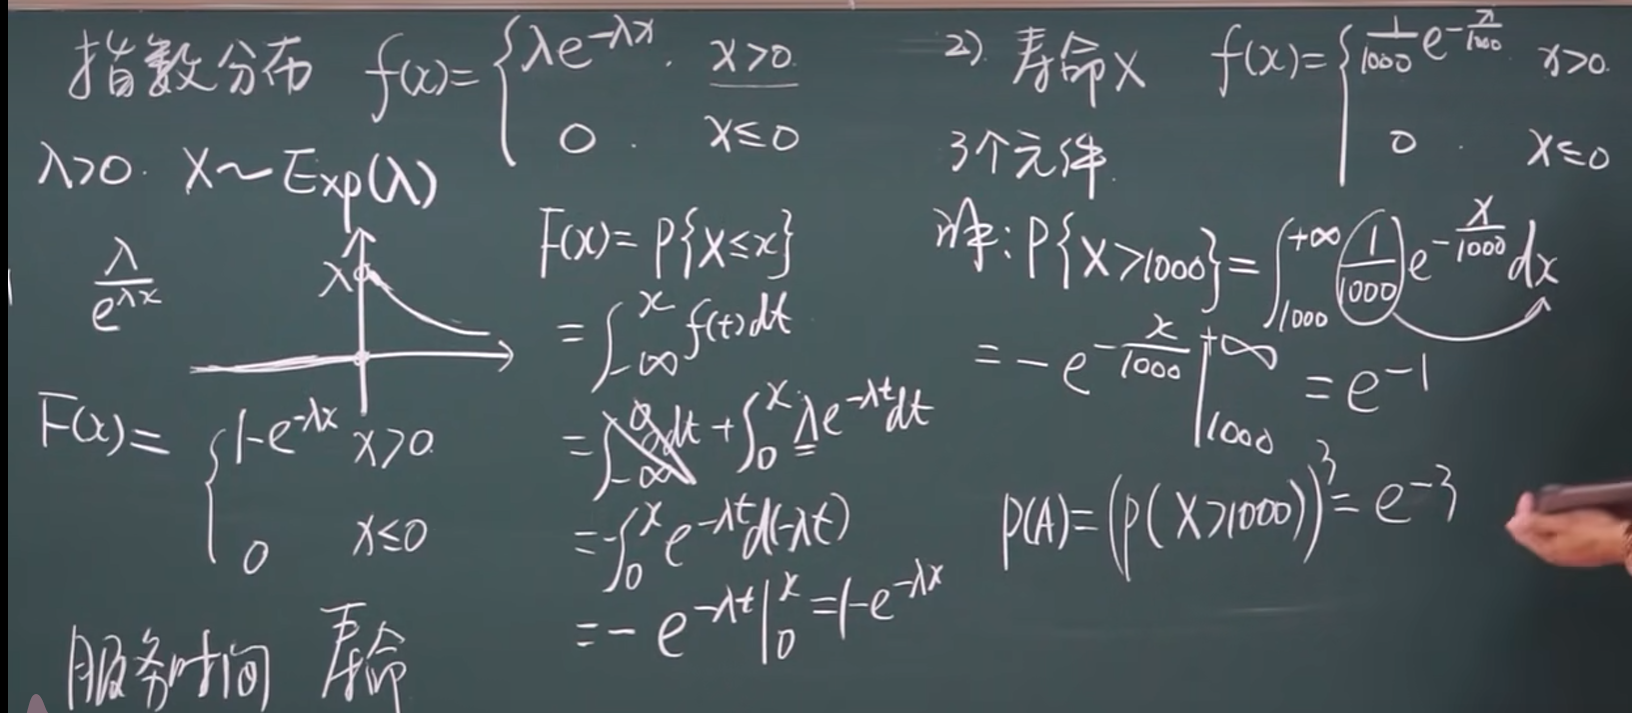 指数分布 f(x)= { λe^{-λx}. x>0.
0. x≤0
λ>0. X~Exp(λ)
λ/e^{λx}
λ
F(x)= { 1-e^{-λx} x>0.
0 x≤0
服务时间 寿命
F(x)=P{X≤x}
=∫_{-∞}^{x} f(t)dt
=∫_{-∞}^{0} 0dt+∫_{0}^{x} λe^{-λt}dt
=-∫_{0}^{x} e^{-λt}d(-λt)
=-e^{-λt}|_{0}^{x}=1-e^{-λx}
2). 寿命X f(x)= { 1/1000 e^{-x/1000} x>0.
0. x≤0
3个元件.
: P{X>1000}=∫_{1000}^{+∞} 1/1000 e^{-x/1000}dx
=-e^{-x/1000}|_{1000}^{+∞} =e^{-1}
P(A)=(P(X>1000))^3=e^{-3}